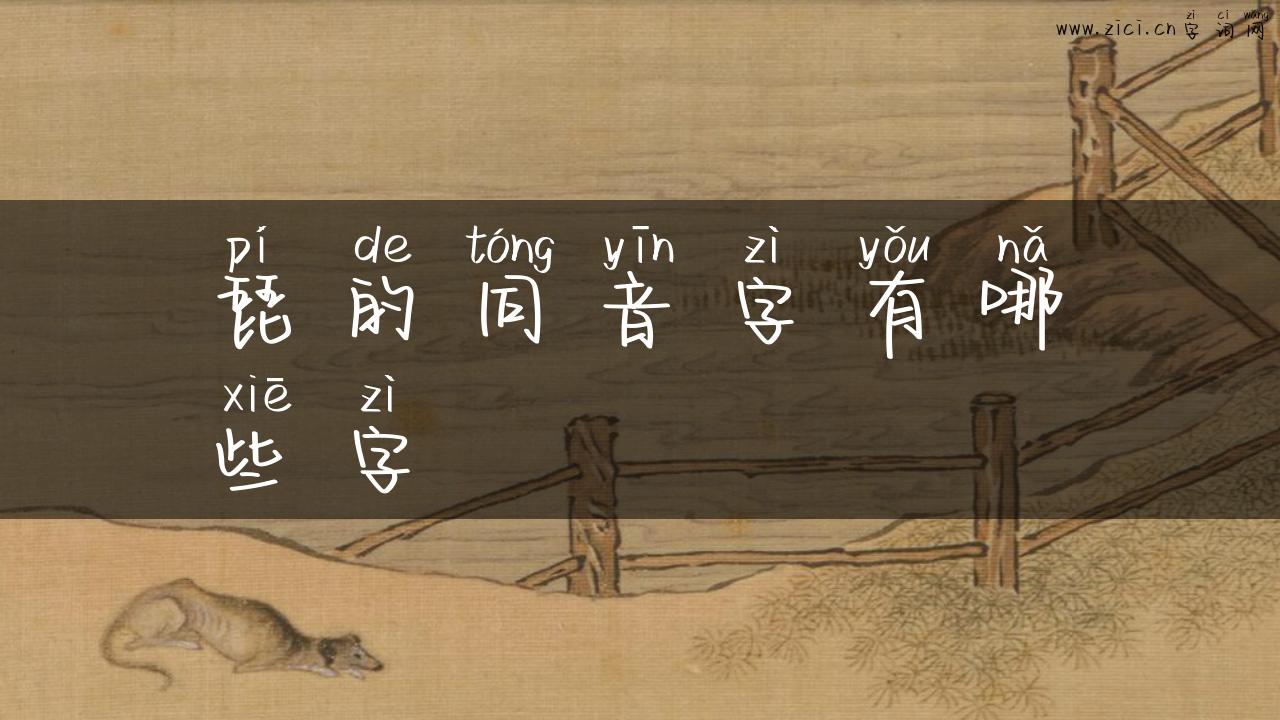 zi ci wang
www.zici.cn 字词网
pí de tóng yīn zì yǒu nǎ
琵的同音字有哪
xiē zì
些字